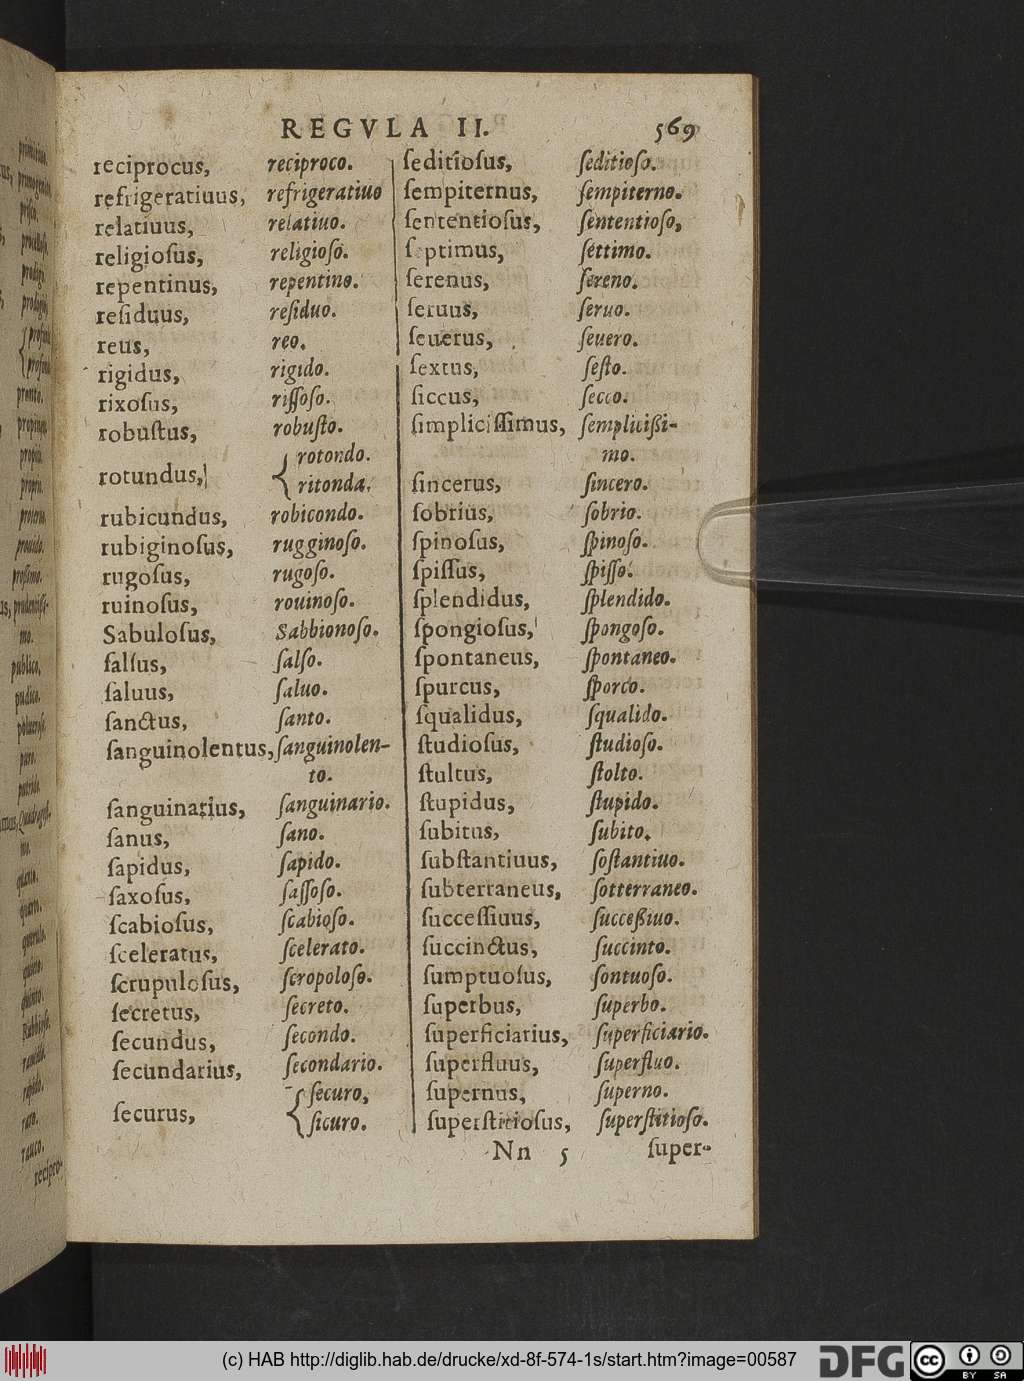 REGVLA II. 569
reciprocus, reciproco.
refrigeratiuus, refrigeratiuo
relatiuus, relatiuo.
religioſus, religioſo.
repentinus, repentino.
reſiduus, reſiduo.
reus, reo.
rigidus, rigido.
rixoſus, riſſoſo.
robuſtus, robuſto.
rotundus, { rotondo.
ritondo.
rubicundus, robicondo.
rubiginoſus, rugginoſo.
rugoſus, rugoſo.
ruinoſus, rouinoſo.
Sabuloſus, Sabbionoſo.
ſalſus, ſalſo.
ſaluus, ſaluo.
ſanctus, ſanto.
ſanguinolentus, ſanguinolen-
to.
ſanguinarius, ſanguinario.
ſanus, ſano.
ſapidus, ſapido.
ſaxoſus, ſaſſoſo.
ſcabioſus, ſcabioſo.
ſceleratus, ſcelerato.
ſcrupuloſus, ſcropoloſo.
ſecretus, ſecreto.
ſecundus, ſecondo.
ſecundarius, ſecondario.
ſecurus, { ſecuro,
ſicuro.
ſeditioſus, ſeditioſo.
ſempiternus, ſempiterno.
ſententioſus, ſententioſo,
ſeptimus, ſettimo.
ſerenus, ſereno.
ſeruus, ſeruo.
ſeuerus, ſeuero.
ſextus, ſeſto.
ſiccus, ſecco.
ſimpliciſſimus, ſemplicißi-
mo.
ſincerus, ſincero.
ſobrius, ſobrio.
ſpinoſus, ſpinoſo.
ſpiſſus, ſpiſſo.
ſplendidus, ſplendido.
ſpongioſus, ſpongoſo.
ſpontaneus, ſpontaneo.
ſpurcus, ſporco.
ſqualidus, ſqualido.
ſtudioſus, ſtudioſo.
ſtultus, ſtolto.
ſtupidus, ſtupido.
ſubitus, ſubito.
ſubſtantiuus, ſoſtantiuo.
ſubterraneus, ſotterraneo.
ſucceſſiuus, ſucceßiuo.
ſuccinctus, ſuccinto.
ſumptuoſus, ſontuoſo.
ſuperbus, ſuperbo.
ſuperficiarius, ſuperficiario.
ſuperfluus, ſuperfluo.
ſupernus, ſuperno.
ſuperſtitioſus, ſuperſtitioſo.
Nn 5 ſuper-
(c) HAB http://diglib.hab.de/drucke/xd-8f-574-1s/start.htm?image=00587
DFG cc BY SA